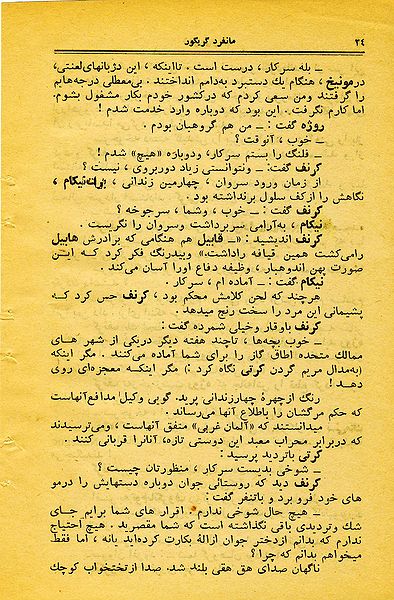 ۲۴
مانفرد گریگور
ــ بله سرکار ، درست است . تااینکه ، این دژبانهای لعنتی،
درمونیخ ، هنگام یك دستبرد به‌دامم انداختند . بی‌معطلی درجه‌هایم
را گرفتند ومن سعی کردم که درکشور خودم بکار مشغول بشوم.
اما کارم نگرفت . این بود که دوباره وارد خدمت شدم !
روژه گفت : ــ من هم گروهبان بودم .
ــ خوب ، آنوقت ؟
ــ فلنگ را بستم سرکار، ودوباره «هیچ» شدم !
کرنف گفت: ــ ونتوانستی زیاد دوربروی ، نیست ؟
از زمان ورود سروان ، چهارمین زندانی ، برات‌نیکام ،
نگاهش را ازکف سلول برنداشته بود .
کرنف گفت : ــ خوب ، وشما ، سرجوخه ؟
نیکام ، به‌آرامی سربرداشت وسروان را نگریست .
کرنف اندیشید : «ــ قابیل هم هنگامی که برادرش هابیل
رامی‌کشت همین قیافه راداشت.» وبیدرنگ فکر کرد که این
صورت پهن اندوهبار ، وظیفه دفاع اورا آسان می‌کند .
نیکام گفت : ــ آماده ام ، سرکار .
هرچند که لحن کلامش محکم بود ، کرنف حس کرد که
پشیمانی این مرد را سخت رنج میدهد .
کرنف باوقار وخیلی شمرده گفت :
ــ خوب بچه‌ها ، تاچند هفته دیگر دریکی از شهر های
ممالك متحده اطاق گاز را برای شما آماده می‌کنند . مگر اینکه
(به‌مدال مریم گردن کرتی نگاه کرد :) مگر اینکه معجزه‌ای روی
دهد !
رنگ ازچهرهٔ چهارزندانی پرید. گویی وکیل مدافع‌آنهاست
که حکم مرگشان را باطلاع آنها می‌رساند .
میدانستند که «آلمان غربی» متفق آنهاست ، ومی‌ترسیدند
که دربرابر محراب معبد این دوستی تازه، آنانرا قربانی کنند .
کرتی باتردید پرسید :
ــ شوخی بدیست سرکار ، منظورتان چیست ؟
کرنف دید که روستائی جوان دوباره دستهایش را درمو
های خود فرو برد و باتنفر گفت :
ــ هیچ حال شوخی ندارم . اقرار های شما برایم جای
شك وتردیدی باقی نگذاشته است که شما مقصرید . هیچ احتیاج
ندارم که بدانم ازدختر جوان ازالهٔ بکارت کرده‌اید یانه ، اما فقط
میخواهم بدانم که چرا ؟
ناگهان صدای هق هقی بلند شد. صدا ازتختخواب کوچك